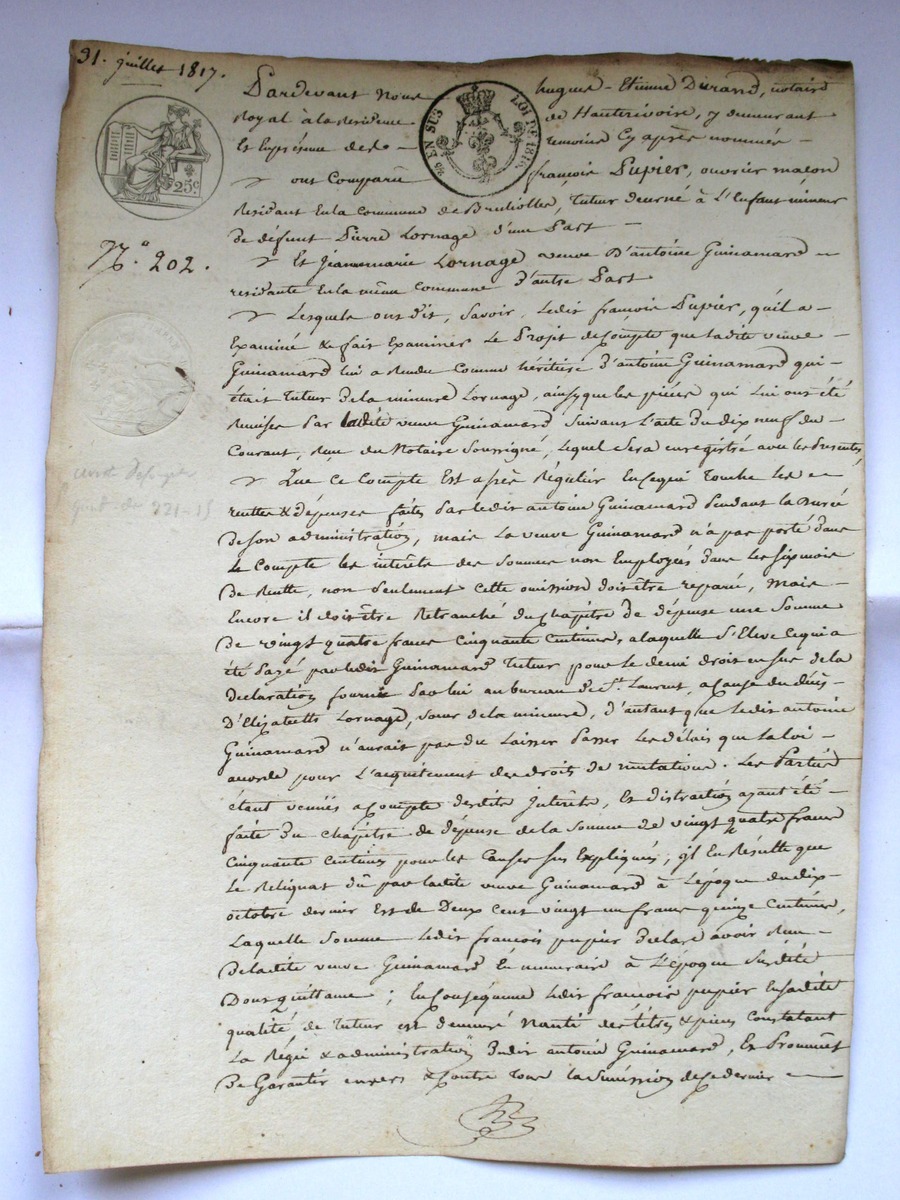 31. juillet 1817.
Pardevant Nous hugues-Etienne Durand, notaire
Royal à la Residence de Hauterivoire, y demeurant
Et En présence des temoins Cy après nommés
EN SUS LOI DE 1816
25c
ont Comparu françois Pupier, ouvrier maçon
Residant En la Commune de Brulioles, Tuteur decerné à L'Enfant mineur
de défunt Pierre Lornage d'une Part
N.º 202.
Et Jeannemarie Lornage veuve D'antoine Guinamard
residante En la même Commune d'autre Part
Lesquels ont dit, Savoir, Ledit françois Pupier, qu'il a
Examiné & fait Examiner Le Projet de Compte que ladite veuve
Guinamard lui a Rendu Comme héritiere d'antoine Guinamard qui
était Tuteur de la mineure Lornage, ainsy que les pièces qui Lui ont été
Remises Par ladite veuve Guinamard Suivant L'acte du dix neuf du
Courant, Reçu du Notaire Soussigné, Lequel Sera enregistré avec les Presentes
Que Ce Compte Est après Régulier En Cequi Touche Les
recettes & dépenses faites Par ledit antoine Guinamard Pendant la Durée
de Son administration, mais La veuve Guinamard n'a pas porté dans
le Compte les interêts des Sommes non Employés dans les Six mois
de Recette, non Seulement Cette omission doit être reparée, mais
Encore il doit être Retranché du Chapitre de dépense une Somme
de vingt quatre francs Cinquante Centimes, a laquelle S'Eleve Cequi a
été Payé par ledit Guinamard Tuteur pour le demi droit en Sus de la
Declaration fournie Par lui au bureau de St. Laurent, a Cause du décès
D'Elizabeth Lornage, Sœur de la mineure, d'autant que Ledit antoine
Guinamard n'aurait pas dû Laisser Passer Les délais que La loi
accorde pour L'acquittement des droits de mutations. Les Parties
étant venues a Compte desdits Interêts, Et distraction ayant été
faite du Chapitre de dépense de la Somme de vingt quatre francs
Cinquante Centimes pour les Causes Sus Expliquées, il En Résulte que
Le Reliquat dû par ladite veuve Guinamard à L'époque du dix
octobre dernier Est de Deux Cent vingt un francs quinze Centimes,
Laquelle Somme Ledit françois pupier Declare avoir Reçu
De ladite veuve Guinamard En numeraire à L'Epoque Susdite
Dont quittance; En Consequence Ledit françois pupier En Sadite
qualité de Tuteur est demeuré Nanti des titres & pièces Constatant
La Régie & administration Dudit antoine Guinamard, Et Promet
De Garantir envers & Contre Tous la Succession de Ce dernier